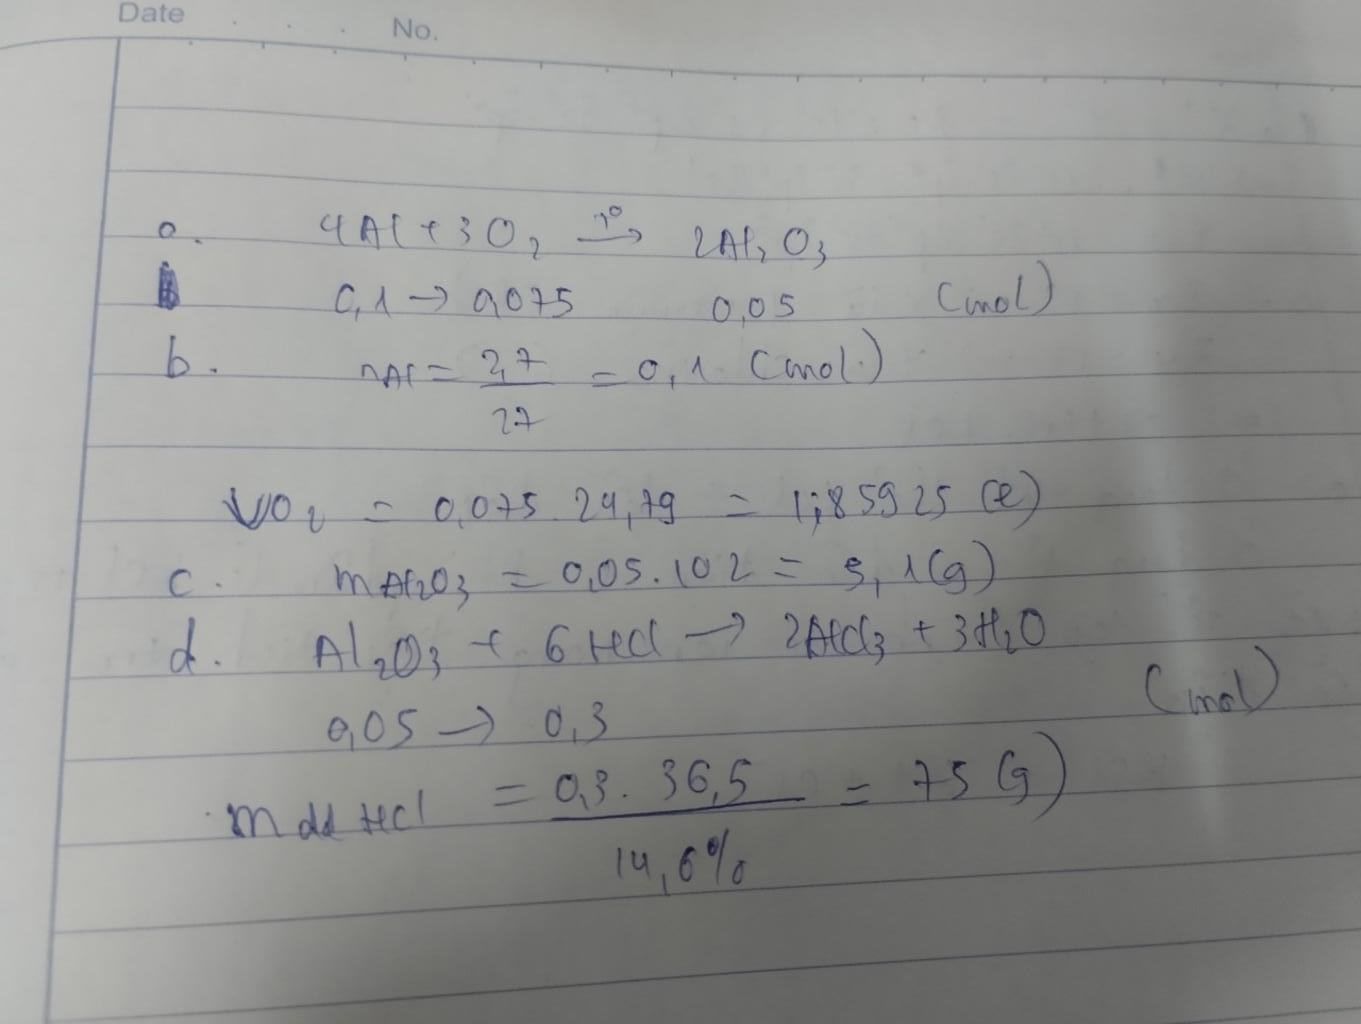 Date . . . No.
a. 4Al + 3O₂ →(t°) 2Al₂O₃
0,1 → 0,075 0,05 (mol)
b. nAl = 2,7/27 = 0,1 (mol)
VO₂ = 0,075.24,79 = 1,85925 (l)
c. mAl2O3 = 0,05.102 = 5,1 (g)
d. Al₂O₃ + 6HCl → 2AlCl₃ + 3H₂O
0,05 → 0,3 (mol)
mdd HCl = 0,3.36,5/14,6% = 75 (g)